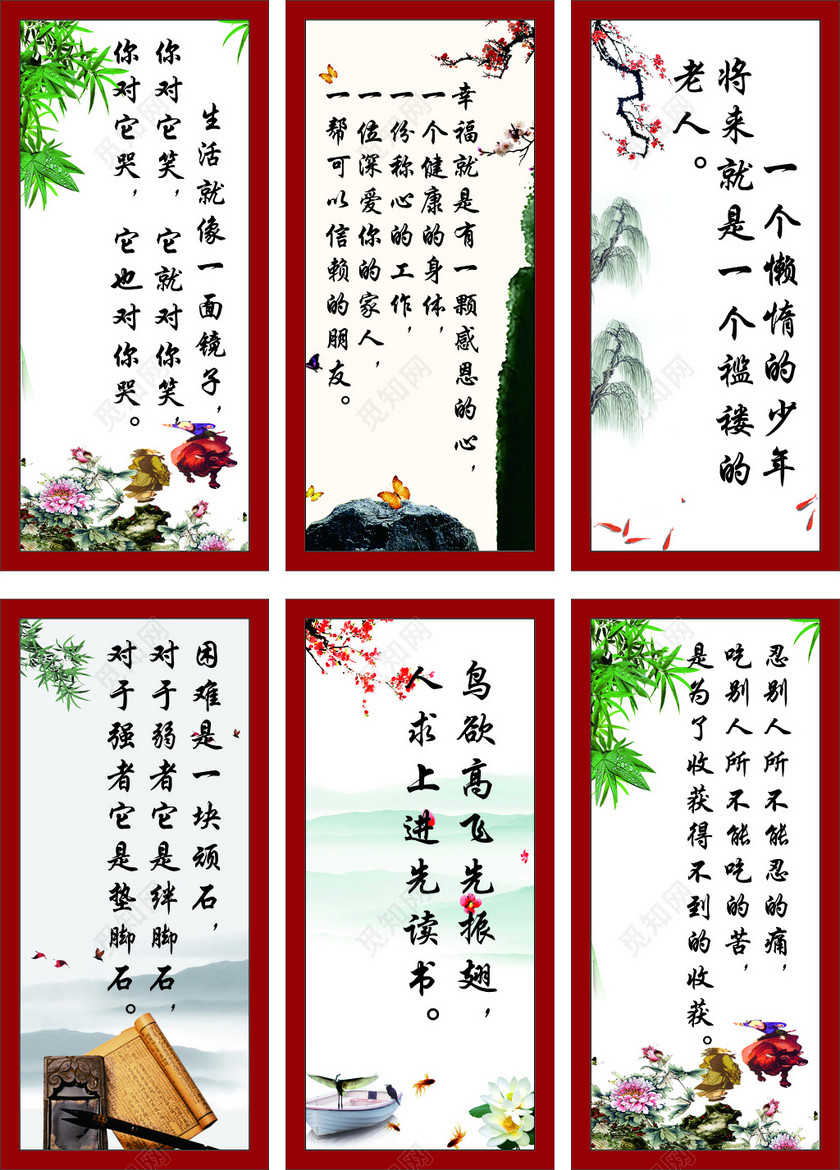 生活就像一面镜子，
你对它笑，它就对你笑
你对它哭，它也对你哭。
幸福就是有一颗感恩的心，
一个健康的身体，
一份称心的工作，
一位深爱你的家人，
一帮可以信赖的朋友。
一个懒惰的少年
将来就是一个褴褛的
老人。
困难是一块顽石，
对于弱者它是绊脚石，
对于强者它是垫脚石。
鸟欲高飞先振翅，
人求上进先读书。
忍别人所不能忍的痛，
吃别人所不能吃的苦，
是为了收获得不到的收获。
觅知网